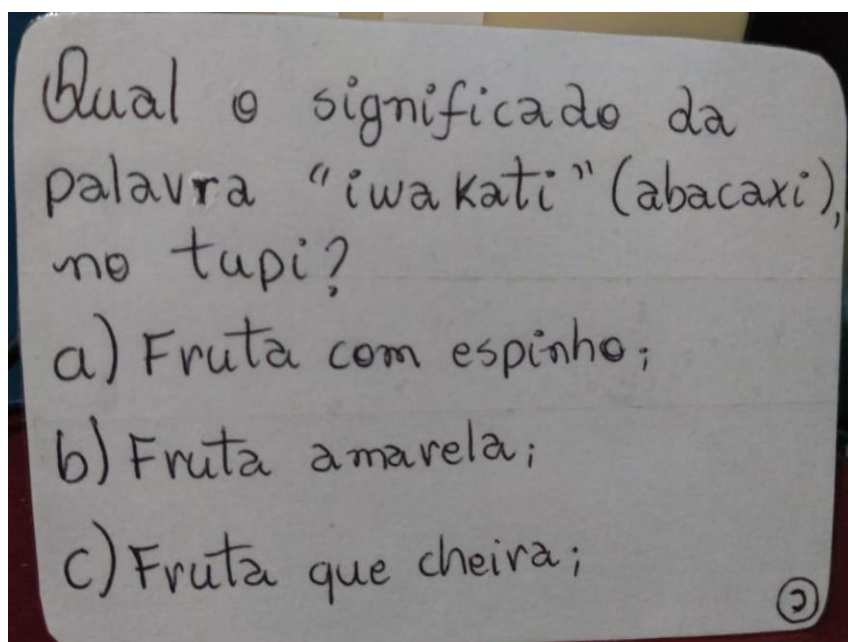 Qual o significado da
palavra "iwa kati" (abacaxi),
no tupi?
a) Fruta com espinho;
b) Fruta amarela;
c) Fruta que cheira;